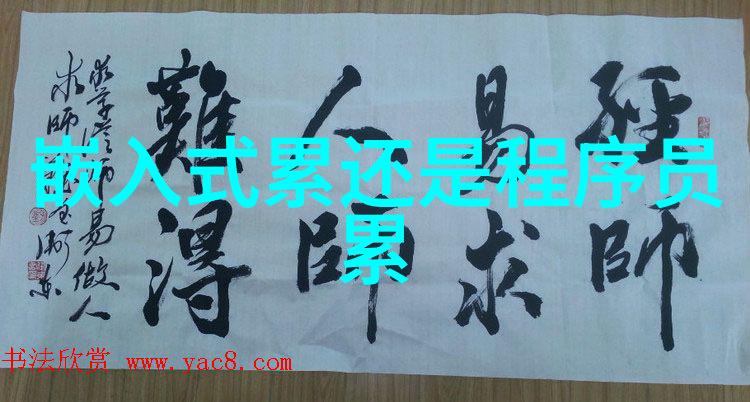 嵌入式累还是程序员累
累
經師
易求
人師
難得
师易做人
求師
书法欣赏 www.yac8.com